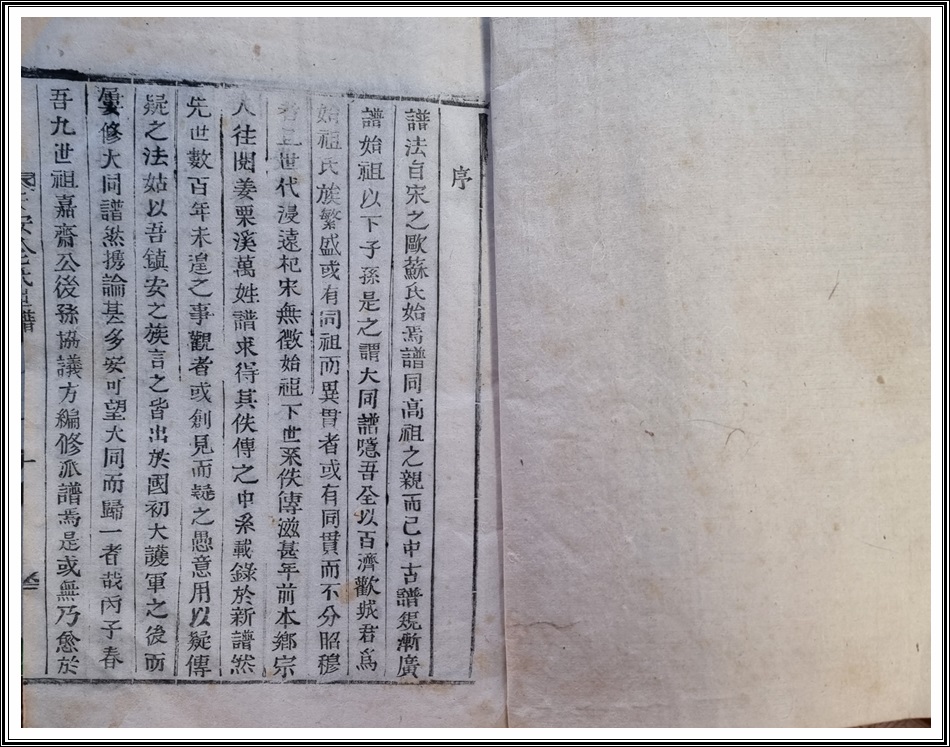 序
譜法自宋之歐蘇氏始焉譜同高祖之親而已中古譜規漸廣
譜始祖以下子孫是之謂大同譜噫吾全以百濟歡城君爲
始祖氏族繁盛或有同祖而異貫者或有同貫而不分昭穆
者且世代浸遠杞宋無徵始祖下世系佚傳滋甚年前本鄕宗
人往閱姜栗溪萬姓譜求得其佚傳之中系載錄於新譜然
先世數百年未遑之事觀者或創見而疑之愚意用以疑傳
疑之法姑以吾鎭安之族言之皆出於國初大護軍之後而
屢修大同譜然携論甚多安可望大同而歸一者哉丙子春
吾九世祖嘉齋公後孫協議方編修派譜焉是或無乃愈於
天安全氏世譜